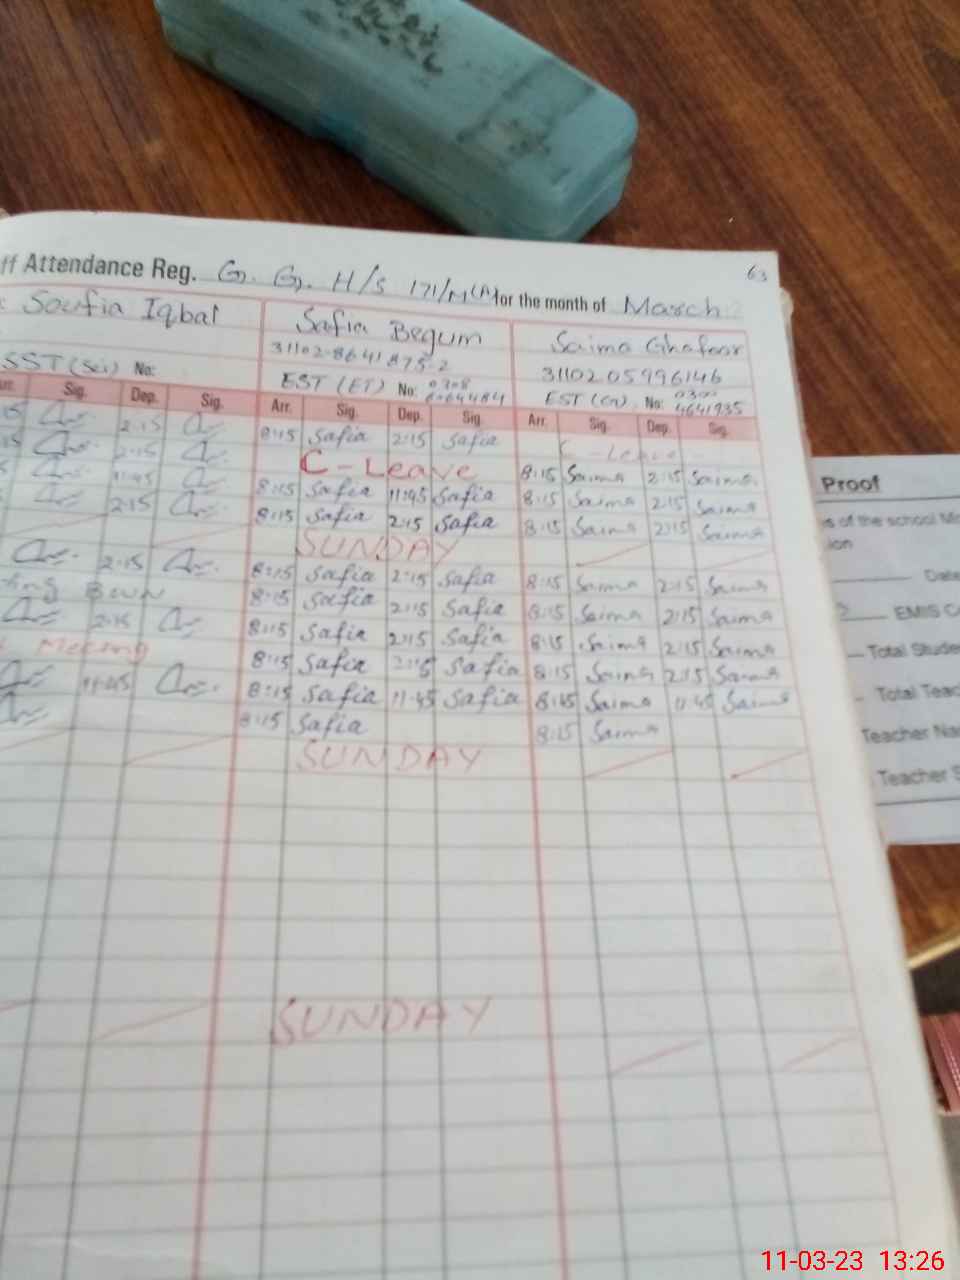 63
ff Attendance Reg. G. G. H/S 171/M(A) for the month of March
Soufia Iqbal Safia Begum Saima Ghafoor
31102-8641875-2 31102 05996146
SST (Sci) No: EST (ET) No: 0308 EST (Gn) No: 0300
4641935
Sig. Dep. Sig. Arr. Sig. Dep. Sig. Arr. Sig. Dep. Sig.
2:15 8:15 Safia 2:15 Safia C - Leave
2:15 C - Leave 8:15 Saima 2:15 Saima
11:45 8:15 Safia 11:45 Safia 8:15 Saima 2:15 Saima
2:15 8:15 Safia 2:15 Safia 8:15 Saima 2:15 Saima
SUNDAY
2:15 8:15 Safia 2:15 Safia 8:15 Saima 2:15 Saima
8:15 Safia 2:15 Safia 8:15 Saima 2:15 Saima
2:15 8:15 Safia 2:15 Safia 8:15 Saima 2:15 Saima
Meeting 8:15 Safia 2:15 Safia 8:15 Saima 2:15 Saima
11:45 8:15 Safia 11:45 Safia 8:15 Saima 11:45 Saima
8:15 Safia 8:15 Saima
SUNDAY
SUNDAY
Proof
s of the school
ion
Date
EMIS C
Total Stude
Total Teac
Teacher Na
Teacher S
11-03-23 13:26